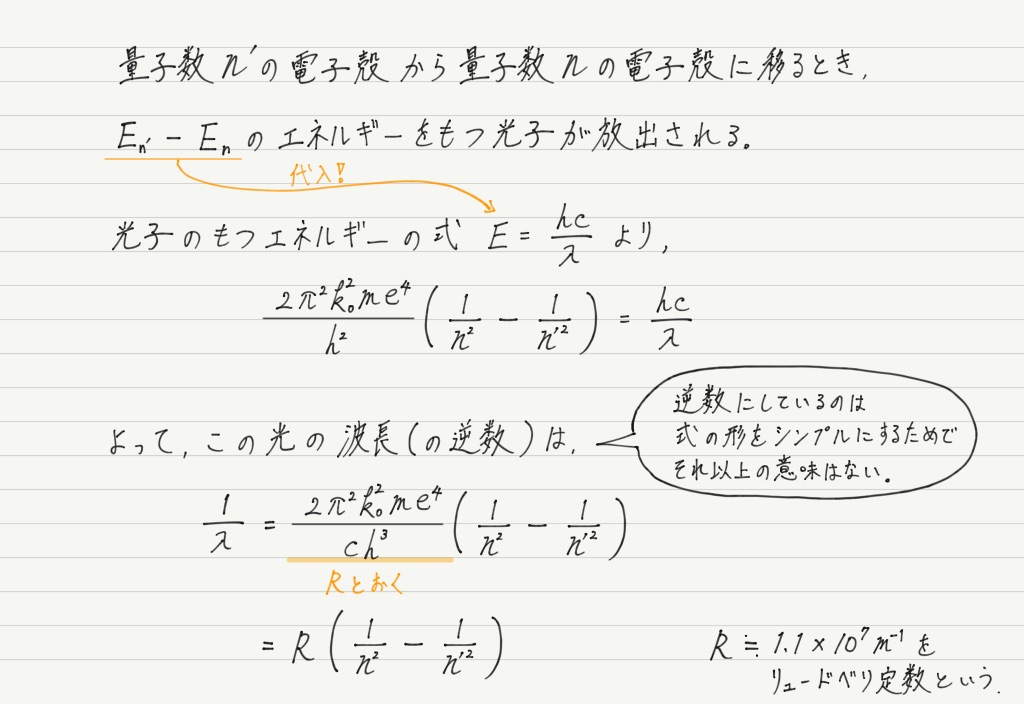 量子数 n′の電子殻から量子数 n の電子殻に移るとき,
Eₙ′ − Eₙ の エネルギーをもつ光子が放出される。
代入!
光子のもつエネルギーの式 E = hc/λ より,
2π²k₀²me⁴/h² (1/n² − 1/n′²) = hc/λ
よって, この光の波長(の逆数)は,
逆数にしているのは
式の形をシンプルにするためで
それ以上の意味はない。
1/λ = 2π²k₀²me⁴/ch³ (1/n² − 1/n′²)
Rとおく
= R (1/n² − 1/n′²)
R ≒ 1.1 × 10⁷ m⁻¹ を
リュードベリ定数という.